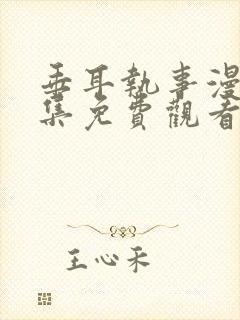 垂耳執事漫
集免費觀看
王心禾